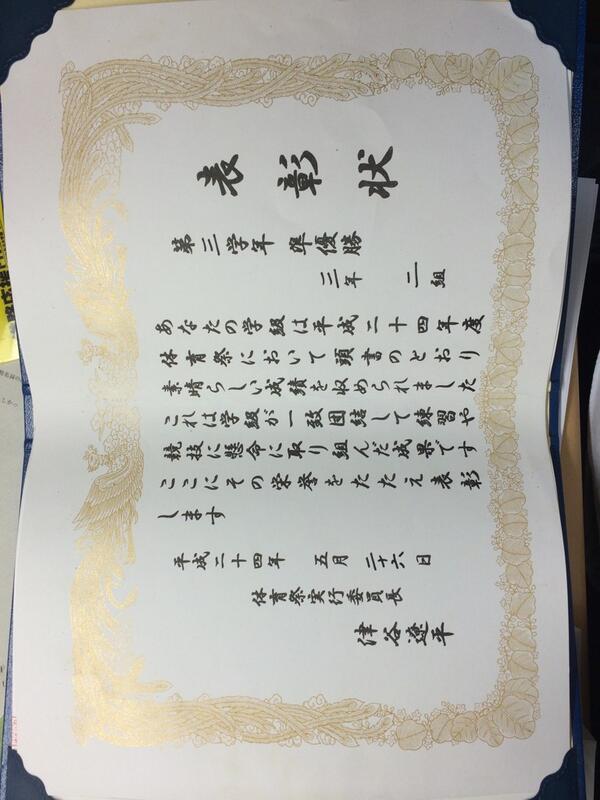 表彰状
第三学年 準優勝
三年 二組
あなたの学級は平成二十四年度
体育祭において頭書のとおり
素晴らしい成績を収められました
これは学級が一致団結して練習や
競技に懸命に取り組んだ成果です
ここにその栄誉をたたえ表彰
します
平成二十四年 五月 二十六日
体育祭実行委員長
津谷遼平